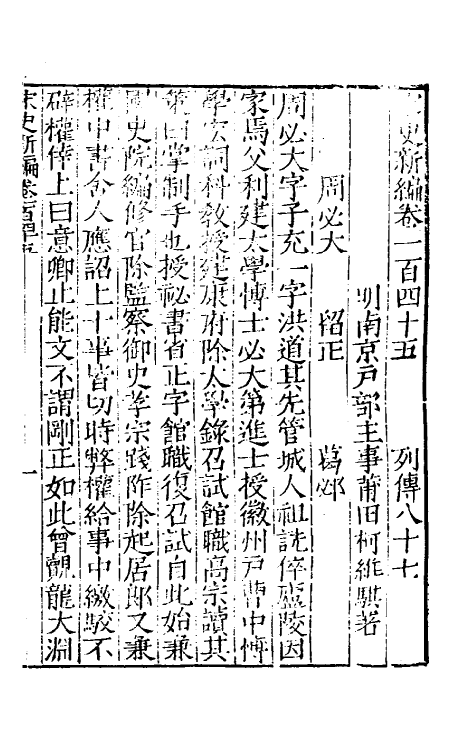 史新編卷一百四十五　列傳八十七
明南京戸部主事莆田柯維騏著
周必大　留正　葛邲
周必大字子充一字洪道其先管城人祖詵倅廬陵因
家焉父利建太學博士必大第進士授徽州戸曹中博
學宏詞科教授建康府除太學錄召試館職高宗讀其
策曰掌制手也授祕書省正字館職復召試自此始兼
國史院編修官除監察御史孝宗踐阼除起居郎又兼
權中書舍人應詔上十事皆切時弊權給事中繳駁不
辟權倖上曰意卿止能文不謂剛正如此曾覿龍大淵
宋史新編卷一百四十五　一